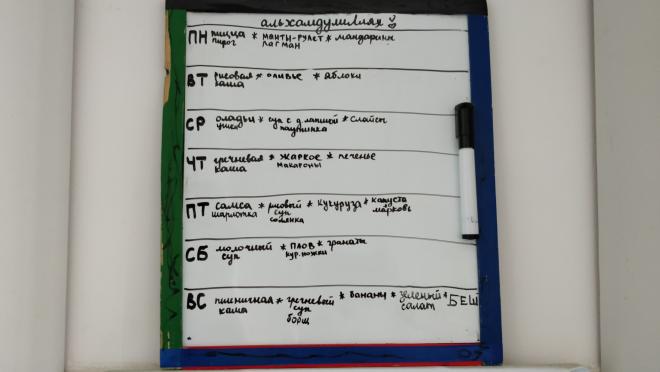 альхамдулиллях
ПН пицца * манты-рулет * мандарины
пирог лагман
ВТ рисовая * оливье * яблоки
каша
СР оладьи * суп с д. лапшой * слайсы
паутинка
ЧТ гречневая * жаркое * печенье
каша макароны
ПТ самса * рисовый * кукуруза * капуста
шарлотка суп морковь
солянка
СБ молочный * плов * гранаты
суп кур. ножки
ВС пшеничная * гречневый * бананы * зеленый * БЕШ
каша суп салат
борщ